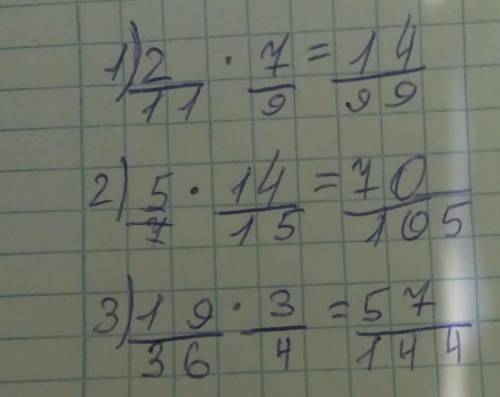 1) 2/11 · 7/9 = 14/99
2) 5/7 · 14/15 = 70/105
3) 19/36 · 3/4 = 57/144